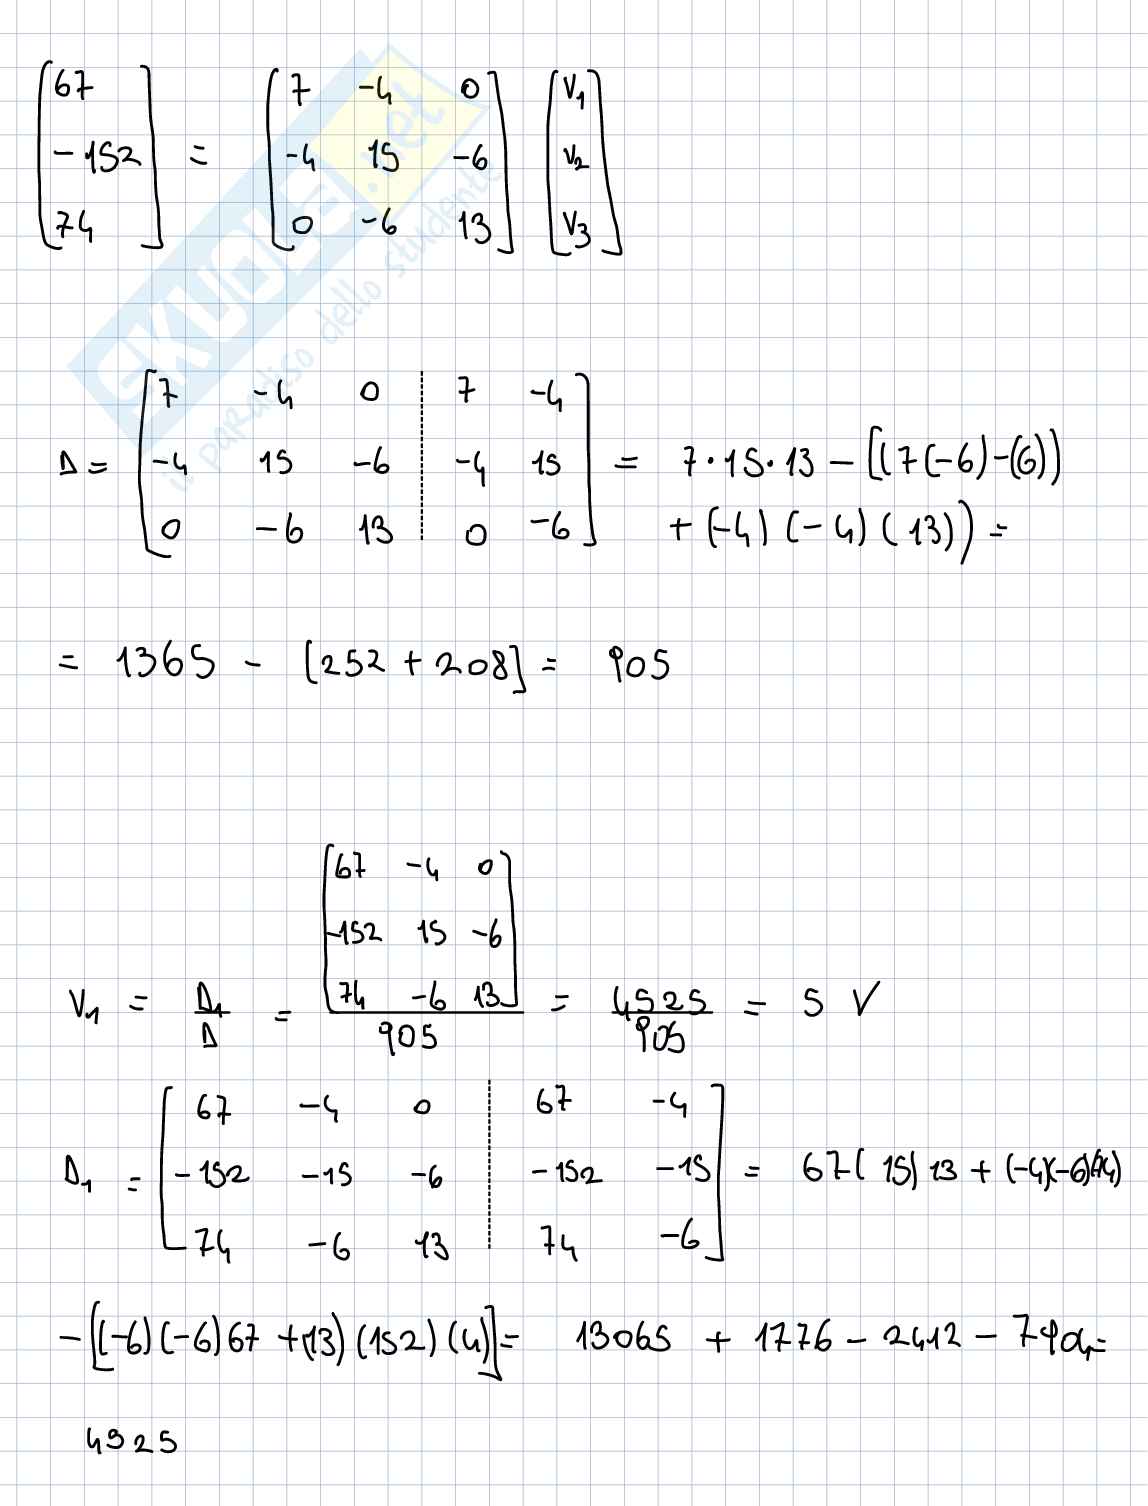 [67 -152 74] = [7 -4 0 -4 15 -6 0 -6 13] [V1 V2 V3]
SKUOLA.net
il paradiso dello studente
Δ = [7 -4 0 | 7 -4
-4 15 -6 | -4 15
0 -6 13 | 0 -6] = 7·15·13 - [(7(-6)-(6))
+ (-4)(-4)(13)) =
= 1365 - [252 + 208] = 905
V1 = Δ1/Δ = [67 -4 0 -152 15 -6 74 -6 13]/905 = 4525/905 = 5 V
Δ1 = [67 -4 0 | 67 -4
-152 -15 -6 | -152 -15
74 -6 13 | 74 -6] = 67(15)13 + (-4)(-6)(74)
-[(-6)(-6)67 + (13)(152)(4)] = 13065 + 1776 - 2412 - 7904 =
4525